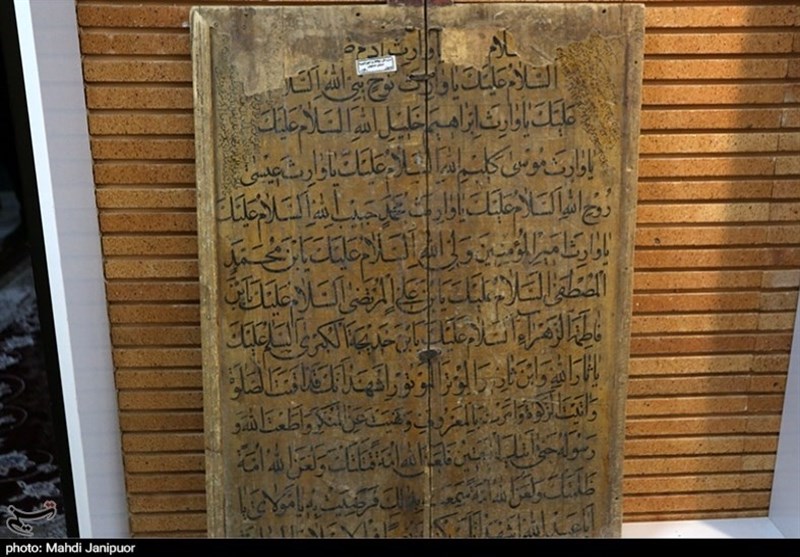 وارث آدم
السلام علیك یا وارث نوح نبی الله السلا
علیك یا وارث ابراهیم خلیل الله السلام علیك
یا وارث موسی کلیم الله السلام علیك یا وارث عیسی
روح الله السلام علیك یا وارث محمد حبیب الله السلام علیك
یا وارث امیر المؤمنین ولی الله السلام علیك یا بن محمد
المصطفی السلام علیك یا بن علی المرتضی السلام علیك یا بن
فاطمة الزهراء السلام علیك یا بن خدیجة الکبری السلام علیك
یا ثار الله وابن ثاره والوتر الموتور اشهد انك قد اقمت الصلوة
واتیت الزکوة وامرت بالمعروف ونهیت عن المنکر واطعت الله و
رسوله حتی اتیك الیقین فلعن الله امة قتلتك ولعن الله امة
ظلمتك ولعن الله امة سمعت بذلك فرضیت به یا مولای یا
ابا عبد الله اشهد انك
تسنیم
photo: Mahdi Janipuor